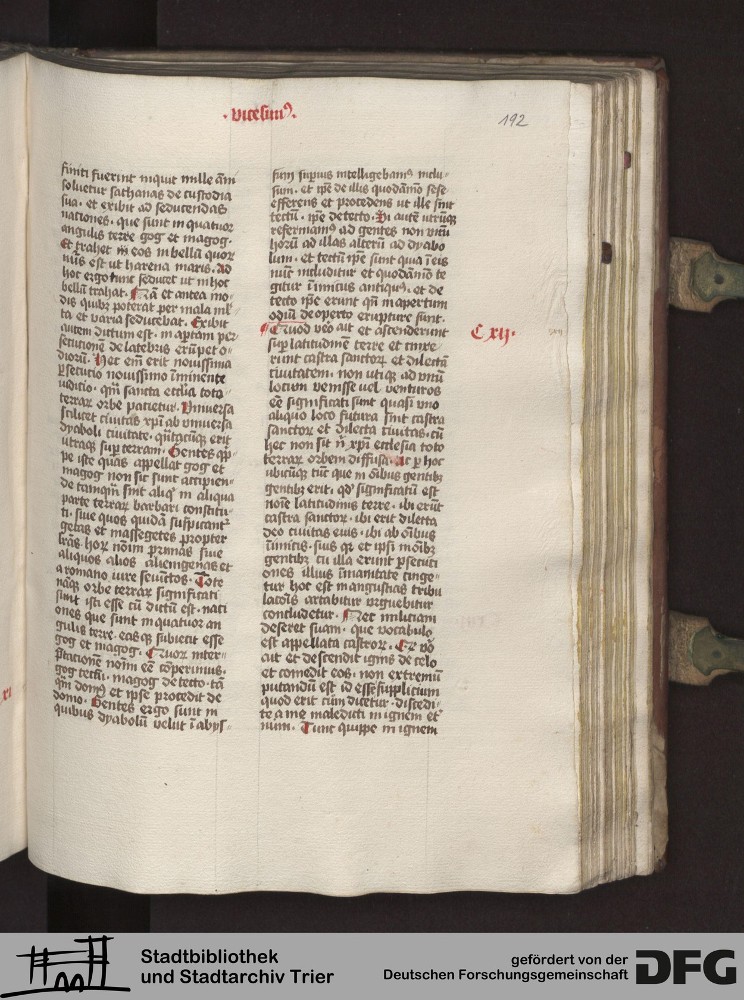 · vicesimꝰ ·
192
finiti fuerint inquit mille ãni
soluetur sathanas de custodia
sua · et exibit ad seducendas
nationes · que sunt in quatuor
angulis terre gog et magog ·
Et trahet in eos in bellũ quor̃
nũs est ut harena maris · Ad
hoc ergo tunc seducet ut in hoc
bellũ trahat · Nã et antea mo-
dis quibꝫ poterat per mala ml̃
ta et varia seducebat · Exibit
autem dictum est · in aptam per
secutionẽ de latebris erũpet o-
diorũ · Hec em̃ erit nouissima
ꝑsecutio nouissimo ĩminente
iuditio · qm̃ sancta ecclĩa toto
terraꝝ orbe patietur · Vniuersa
scilicet ciuitas xp̃i ab vniuersa
dyaboli ciuitate · qũtacũqꝫ erit
utraqꝫ suꝑ terram · Gentes qp̃-
pe iste quas appellat gog et
magog non sic sunt accipien-
de tamqm̃ sint aliqĩ in aliqua
parte terraꝝ barbari constitu-
ti · siue quos quidã suspicantᷣ
getas et massegetes propter
lrãs hoꝝ nõim primas siue
aliquos alios alienigenas et
a romano iure seiũctos · Tote
nãqꝫ orbe terraꝝ significati
sunt isti esse cũ dictũ est · nati
ones que sunt in quatuor an
gulis terre · easqꝫ subiecit esse
gog et magog · Quoꝝ inter-
p̃tationẽ nõim eẽ cõperimus ·
gog tectũ · magog de tecto · tã
qm̃ domꝰ et ipse procedit de
domo · Gentes ergo sunt in
quibus dyabolũ velut ĩ abys-
sum suꝑius intelligebamꝰ inclu-
sum · et ip̃e de illis quodãmo sese
efferens et procedens ut ille sint
tectũ · ip̃e de tecto · Si autẽ utrũqꝫ
referiamꝰ ad gentes non vnũ
horũ ad illas alterũ ad dyabo
lum · et tectũ ip̃e sunt quia ĩ eis
nũc includitur et quodãmo te
gitur ĩnimicus antiquꝰ · et de
tecto ip̃e erunt qñ in apertum
odiũ de operto erupture sunt ·
Quod vẽo ait et ascenderunt
suꝑ latitudinẽ terre et cinxe-
runt castra sanctoꝝ et dilectã
ciuitatem · non utiqꝫ ad vnũ
locum venisse uel venturos
eẽ significati sunt quasi vno
aliquo loco futura sint castra
sanctoꝝ et dilecta ciuitas · cũ
hec non sit ñ xp̃i ecclesia toto
terraꝝ orbem diffusa · Ac ꝑ hoc
ubicũqꝫ tũc que in õibus gentibꝫ
gentibꝫ erit · qđ significatũ est
noĩe latitudinis terre · ibi erũt
castra sanctoꝝ · ibi erit dilecta
deo ciuitas eius · ibi ab õibus
ĩimicis · suis qꝫ et ipsi in õibꝫ
gentibꝫ cũ illa erunt ꝑsecuti
ones illius ĩmanitate cinge-
tur hoc est in angustias tribu
lacõis artabitur vrguebitur
concludetur · Nec miliciam
deseret suam · que vocabulo
est appellata castroꝝ · Qꝫ vẽo
ait et descendit ignis de celo
et comedit eos · non extremũ
putandũ est id esse supplicium
quod erit cum dicetur · discedi-
te a me maledicti in ignem et̾
num · Tunc quippe in ignem
C xij ·
xi
Stadtbibliothek
und Stadtarchiv Trier
gefördert von der
Deutschen Forschungsgemeinschaft
DFG